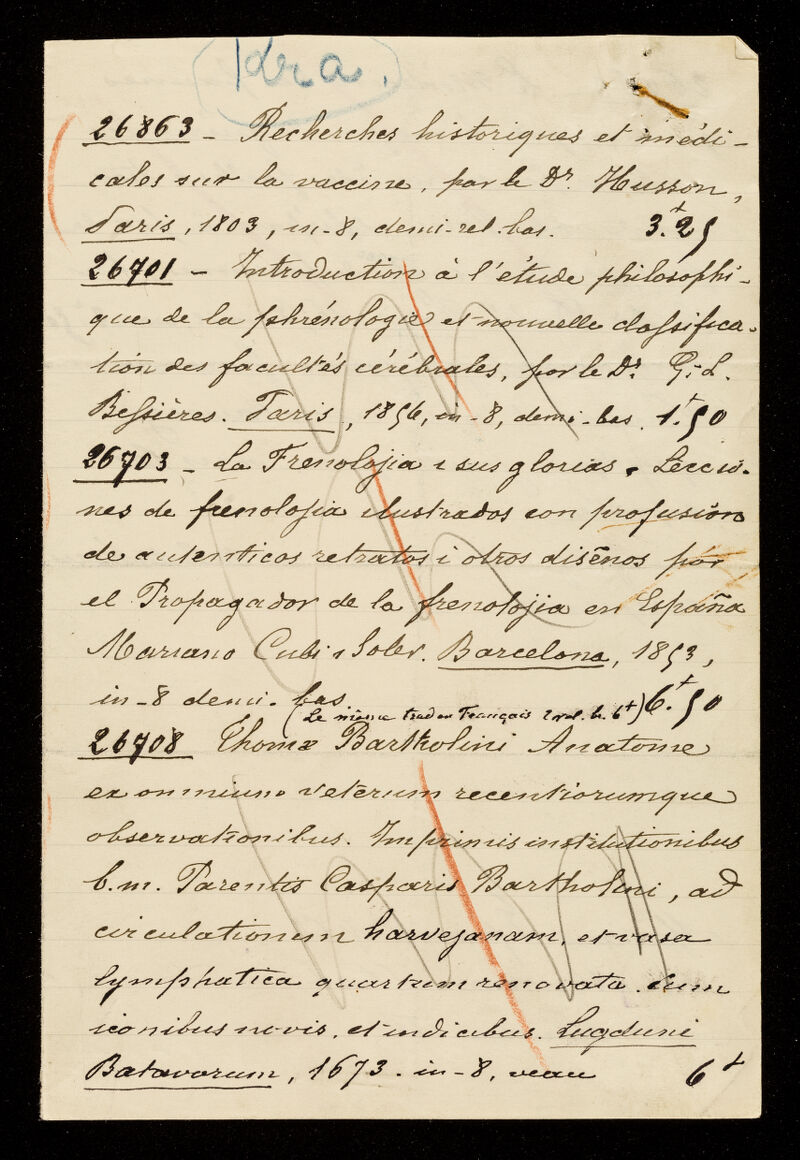 26863 - Recherches historiques et médi-
cales sur la vaccine, par le Dr. Husson,
Paris, 1803, in-8, demi-rel. bas. 3.+25
26701 - Introduction à l'étude philosophi-
que de la phrénologie et nouvelle classifica-
tion des facultés cérébrales, par le Dr. G.L.
Bessières. Paris, 1856, in-8, demi-bas. 1.+50
26703 - La Frenolojia i sus glorias. Leccio-
nes de frenolojia ilustrados con profusion
de autenticos retratos i otros diseños por
el Propagador de la frenolojia en España
Mariano Cubi i Soler. Barcelona, 1853,
in-8 demi-bas. 6.+50
(Le même trad en Français 2 vol. b. 6+)
26708 Thomæ Bartholini Anatome
ex omnium veterum recentiorumque
observationibus. Imprimis institutionibus
b.m. Parentis Casparis Bartholini, ad
circulationem harvejanam, et vasa
lymphatica quartum renovata. cum
iconibus novis, et indicibus. Lugduni
Batavorum, 1673. in-8, veau 6+